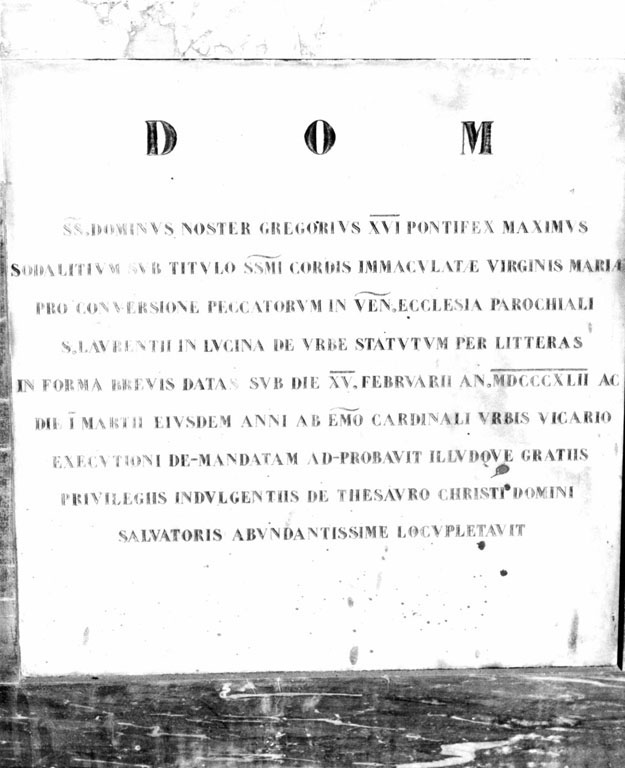 D O M
SS. DOMINVS NOSTER GREGORIVS XVI PONTIFEX MAXIMVS
SODALITIVM SVB TITVLO SSMI CORDIS IMMACVLATÆ VIRGINIS MARIÆ
PRO CONVERSIONE PECCATORVM IN VEN. ECCLESIA PAROCHIALI
S. LAVRENTII IN LVCINA DE VRBE STATVTVM PER LITTERAS
IN FORMA BREVIS DATAS SVB DIE XV. FEBRVARII AN. MDCCCXLII AC
DIE I MARTII EIVSDEM ANNI AB EMO CARDINALI VRBIS VICARIO
EXECVTIONI DE-MANDATAM AD-PROBAVIT ILLVDQVE GRATIIS
PRIVILEGIIS INDVLGENTIIS DE THESAVRO CHRISTI DOMINI
SALVATORIS ABVNDANTISSIME LOCVPLETAVIT